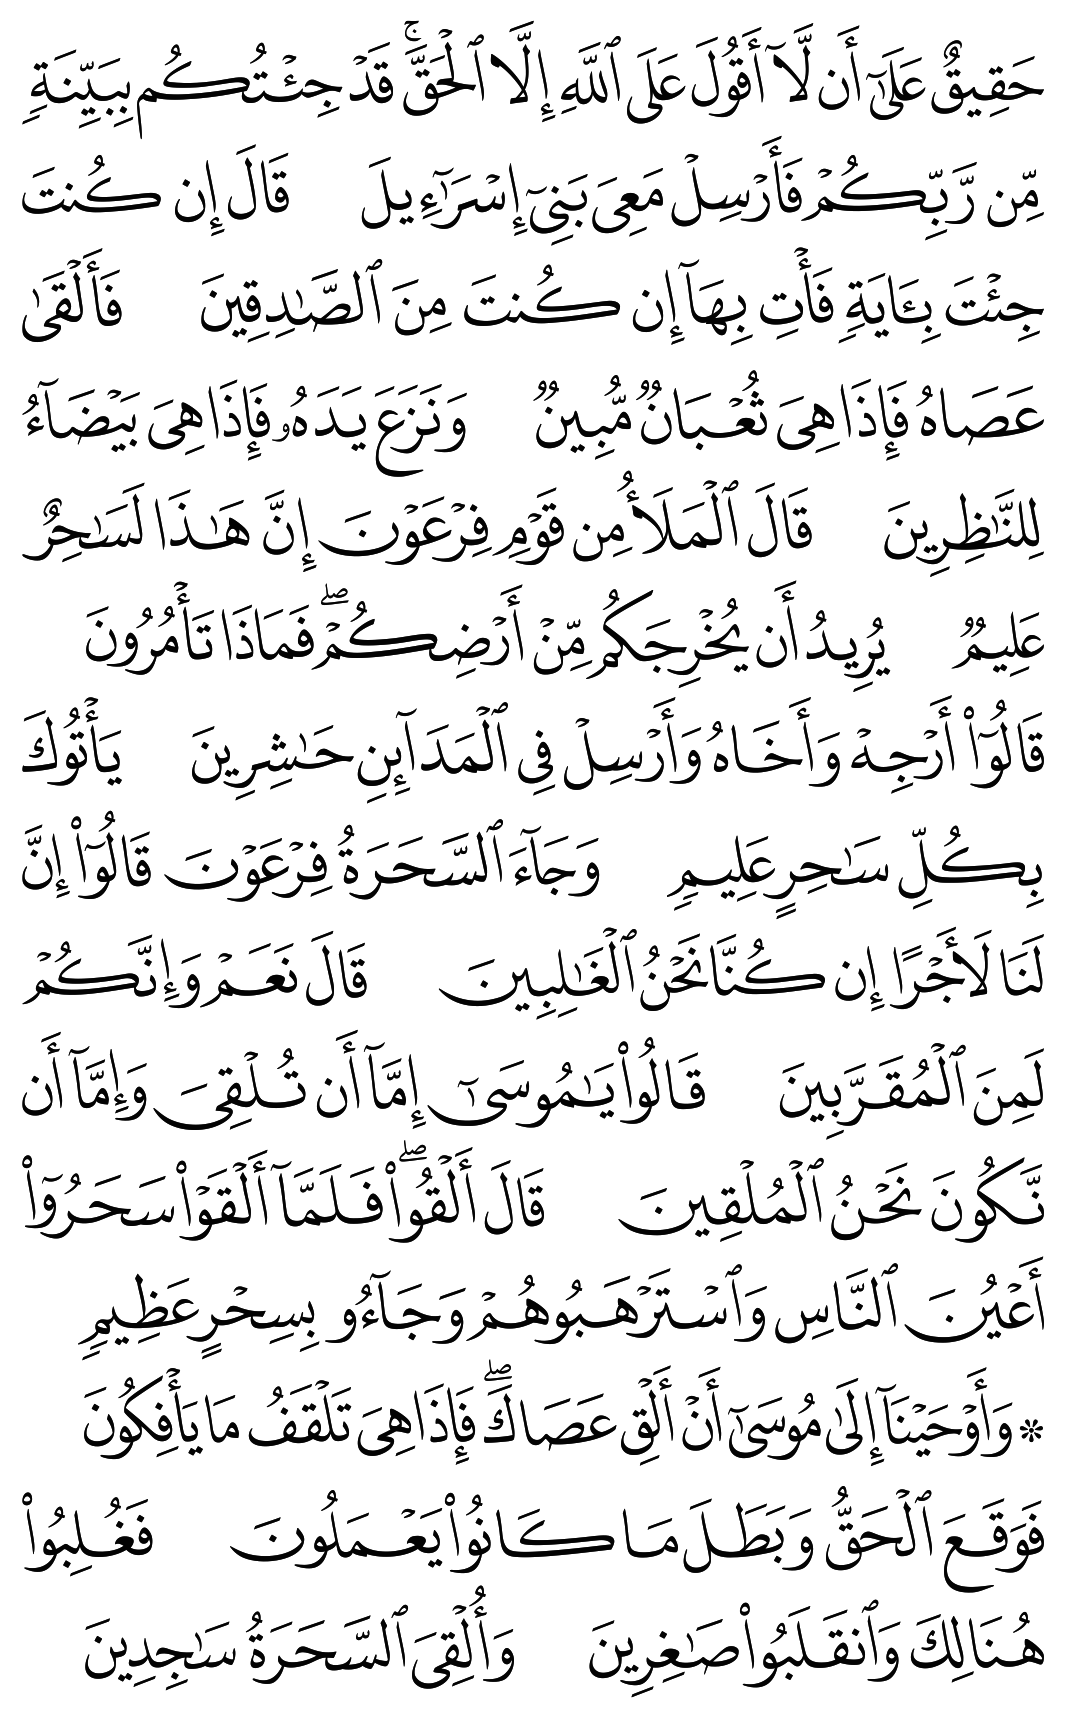 حَقِيقٌ عَلَىٰٓ أَن لَّآ أَقُولَ عَلَى ٱللَّهِ إِلَّا ٱلْحَقَّۚ قَدْ جِئْتُكُم بِبَيِّنَةٍ
مِّن رَّبِّكُمْ فَأَرْسِلْ مَعِيَ بَنِيٓ إِسْرَٰٓءِيلَ قَالَ إِن كُنتَ
جِئْتَ بِـَٔايَةٍ فَأْتِ بِهَآ إِن كُنتَ مِنَ ٱلصَّٰدِقِينَ فَأَلْقَىٰ
عَصَاهُ فَإِذَا هِيَ ثُعْبَانٌ مُّبِينٌ وَنَزَعَ يَدَهُۥ فَإِذَا هِيَ بَيْضَآءُ
لِلنَّٰظِرِينَ قَالَ ٱلْمَلَأُ مِن قَوْمِ فِرْعَوْنَ إِنَّ هَٰذَا لَسَٰحِرٌ
عَلِيمٌ يُرِيدُ أَن يُخْرِجَكُم مِّنْ أَرْضِكُمْۖ فَمَاذَا تَأْمُرُونَ
قَالُوٓا۟ أَرْجِهْ وَأَخَاهُ وَأَرْسِلْ فِي ٱلْمَدَآئِنِ حَٰشِرِينَ يَأْتُوكَ
بِكُلِّ سَٰحِرٍ عَلِيمٍ وَجَآءَ ٱلسَّحَرَةُ فِرْعَوْنَ قَالُوٓا۟ إِنَّ
لَنَا لَأَجْرًا إِن كُنَّا نَحْنُ ٱلْغَٰلِبِينَ قَالَ نَعَمْ وَإِنَّكُمْ
لَمِنَ ٱلْمُقَرَّبِينَ قَالُوا۟ يَٰمُوسَىٰٓ إِمَّآ أَن تُلْقِيَ وَإِمَّآ أَن
نَّكُونَ نَحْنُ ٱلْمُلْقِينَ قَالَ أَلْقُوا۟ۖ فَلَمَّآ أَلْقَوْا۟ سَحَرُوٓا۟
أَعْيُنَ ٱلنَّاسِ وَٱسْتَرْهَبُوهُمْ وَجَآءُو بِسِحْرٍ عَظِيمٍ
* وَأَوْحَيْنَآ إِلَىٰ مُوسَىٰٓ أَنْ أَلْقِ عَصَاكَۖ فَإِذَا هِيَ تَلْقَفُ مَا يَأْفِكُونَ
فَوَقَعَ ٱلْحَقُّ وَبَطَلَ مَا كَانُوا۟ يَعْمَلُونَ فَغُلِبُوا۟
هُنَالِكَ وَٱنقَلَبُوا۟ صَٰغِرِينَ وَأُلْقِيَ ٱلسَّحَرَةُ سَٰجِدِينَ